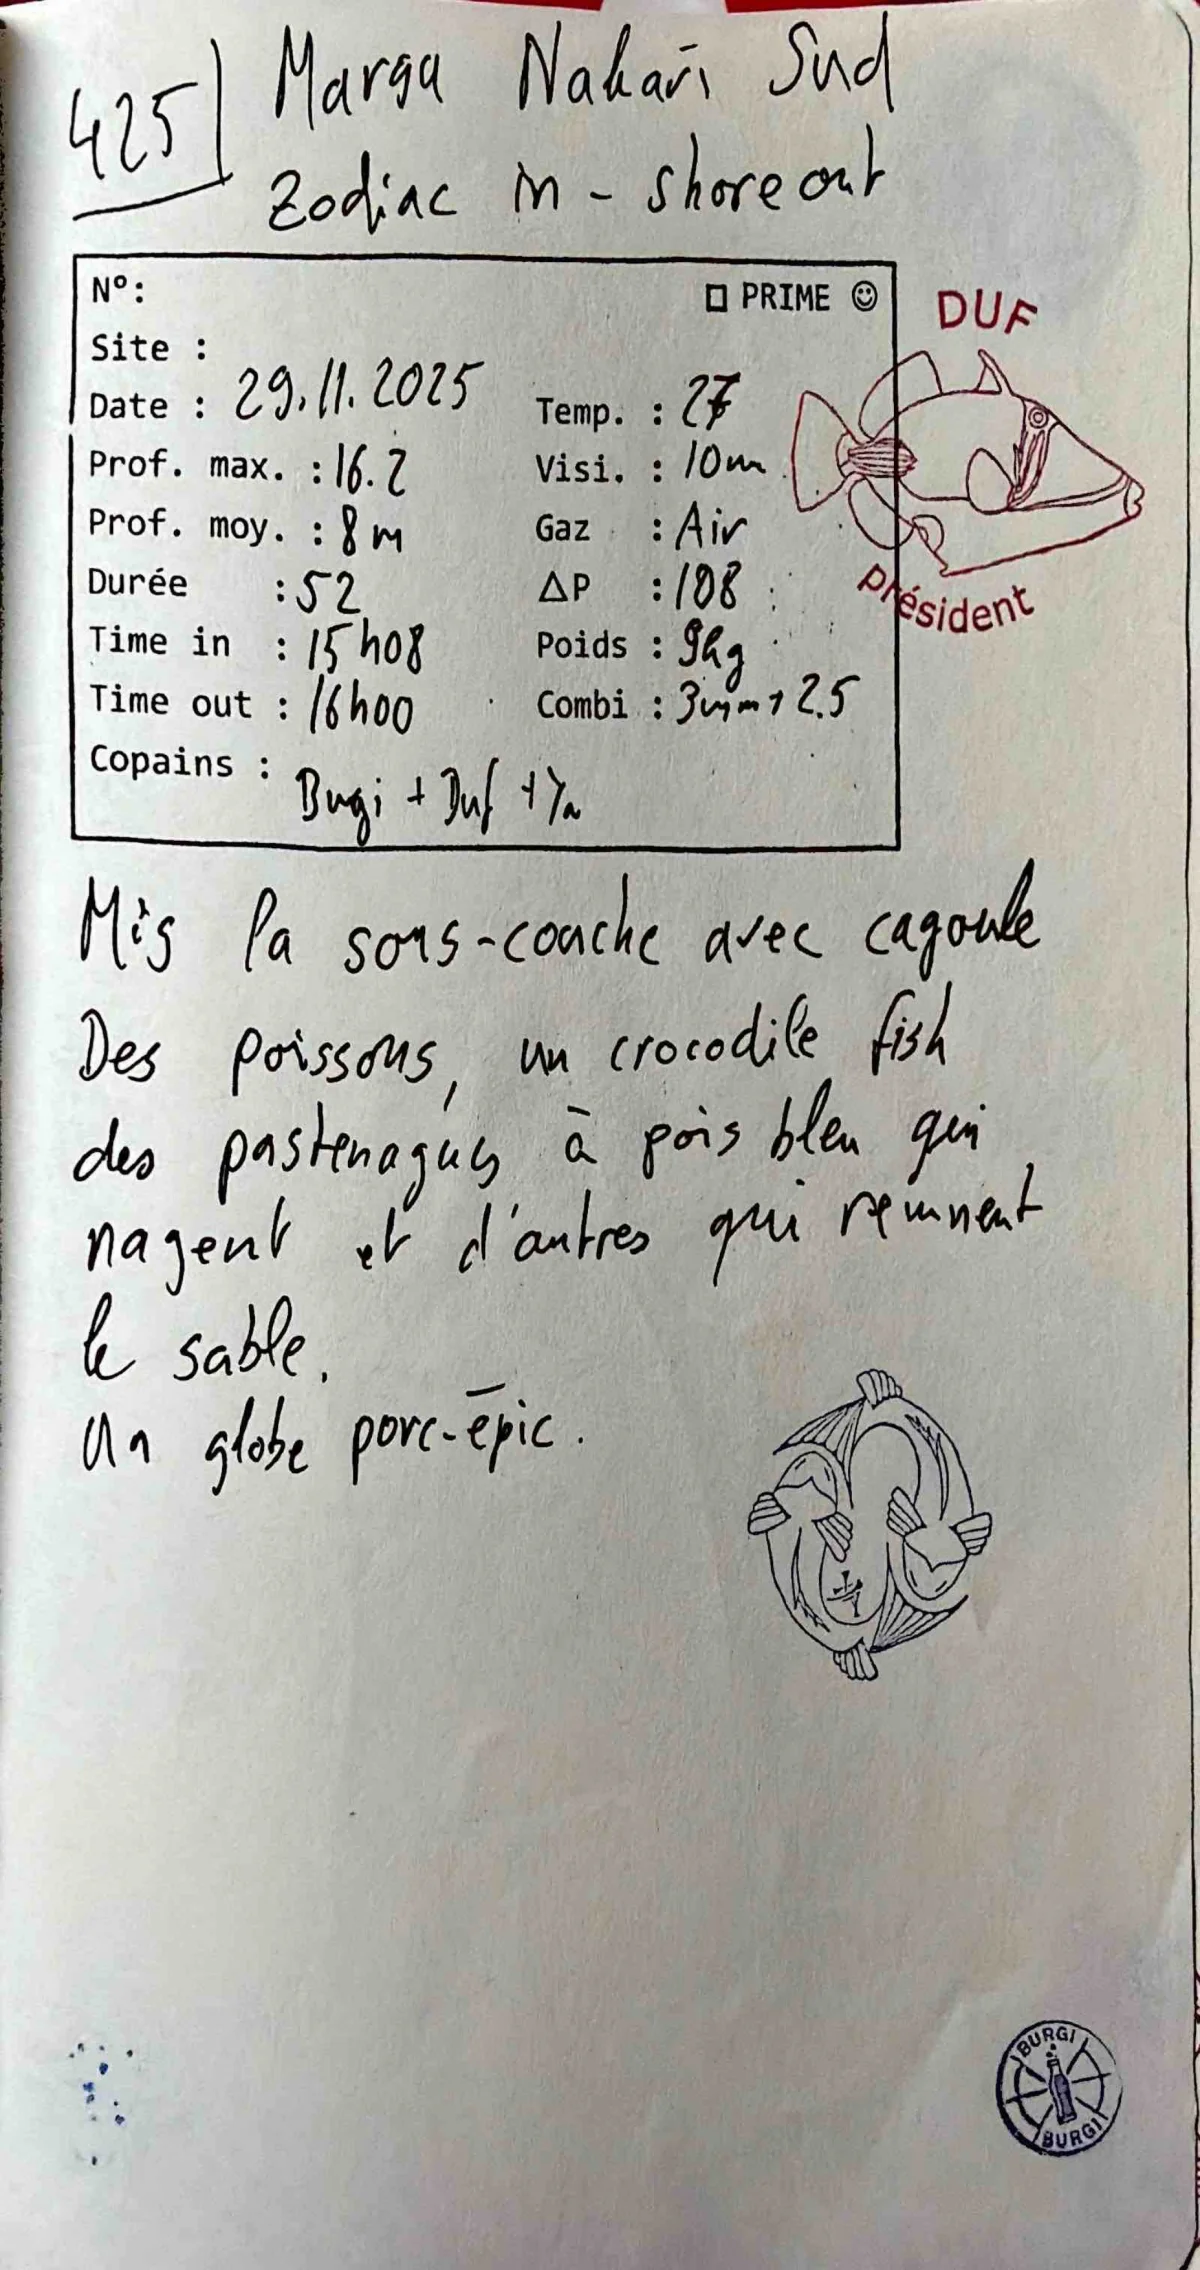 425 Marga Nakari Sud
Zodiac in - shore out
N°: □ PRIME ☺
Site :
Date : 29.11.2025 Temp. : 27
Prof. max. : 16.2 Visi. : 10m
Prof. moy. : 8m Gaz : Air
Durée : 52 ΔP : 108
Time in : 15h08 Poids : 9kg
Time out : 16h00 Combi : 3mm + 2.5
Copains : Bugi + Duf + Ya
DUF
Président
Mis la sous-couche avec cagoule
Des poissons, un crocodile fish
des pastenagues à pois bleu qui
nagent et d'autres qui remuent
le sable.
Un globe porc-épic.
BURGI
BURGI